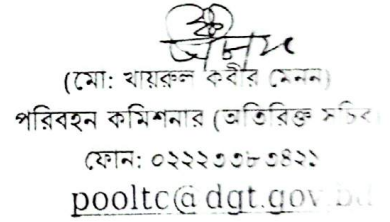 (মো: খায়রুল কবীর মেনন)
পরিবহন কমিশনার (অতিরিক্ত সচিব)
ফোন: ০২২২৩৩৮৩৪২১
pooltc@dgt.gov.bd